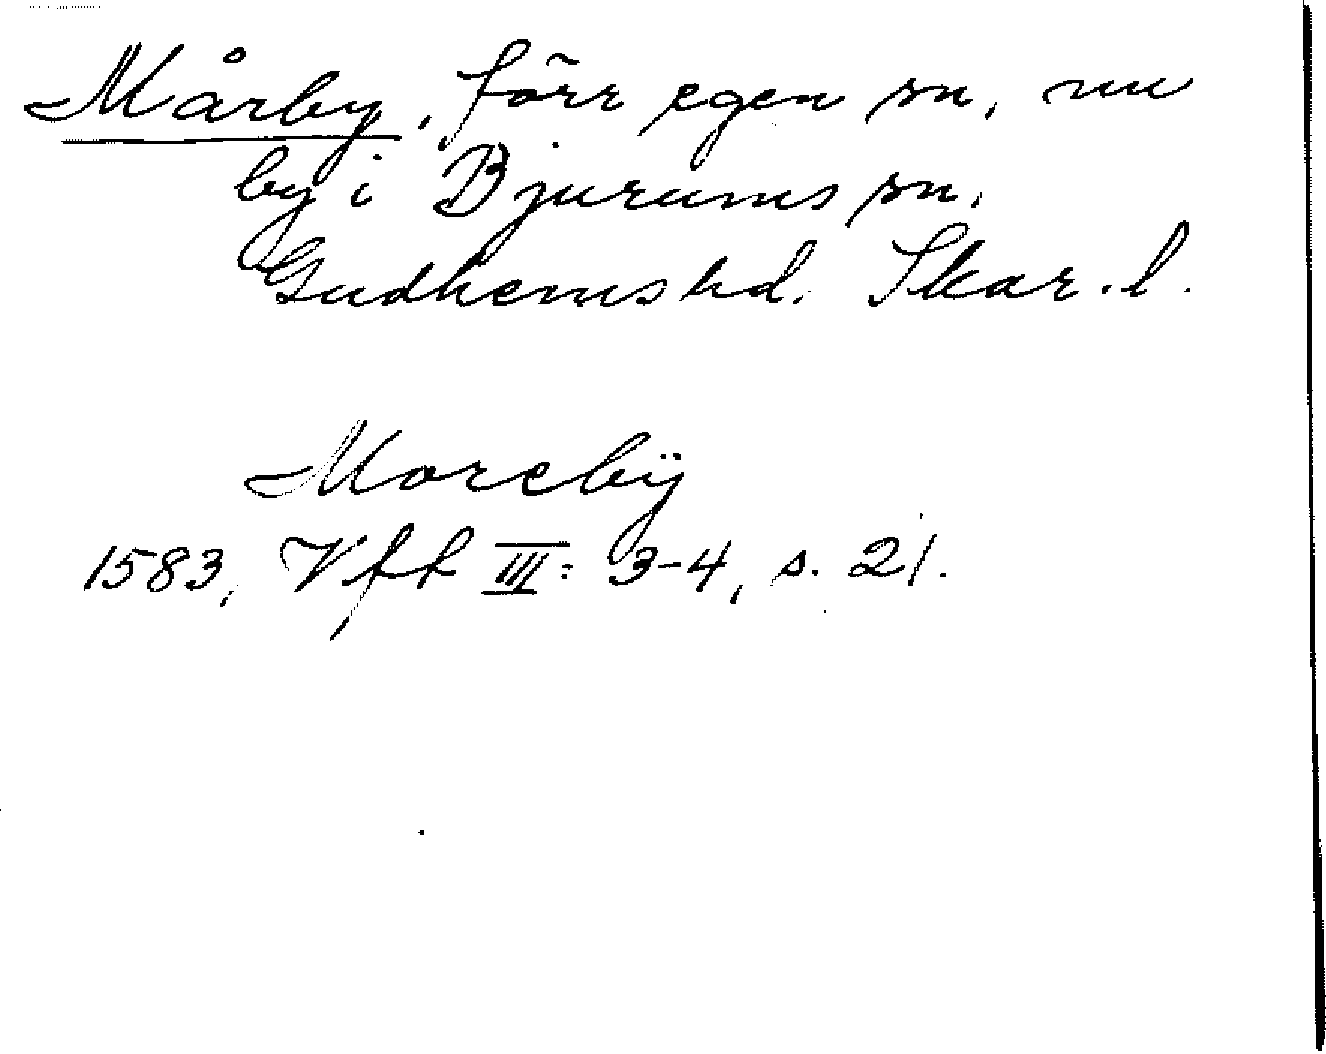 Mårby, förr egen sn, nu
by i Bjurums sn,
Gudhems hd. Skar. l.
Morebÿ
1583, Vfft III: 3-4, s. 21.